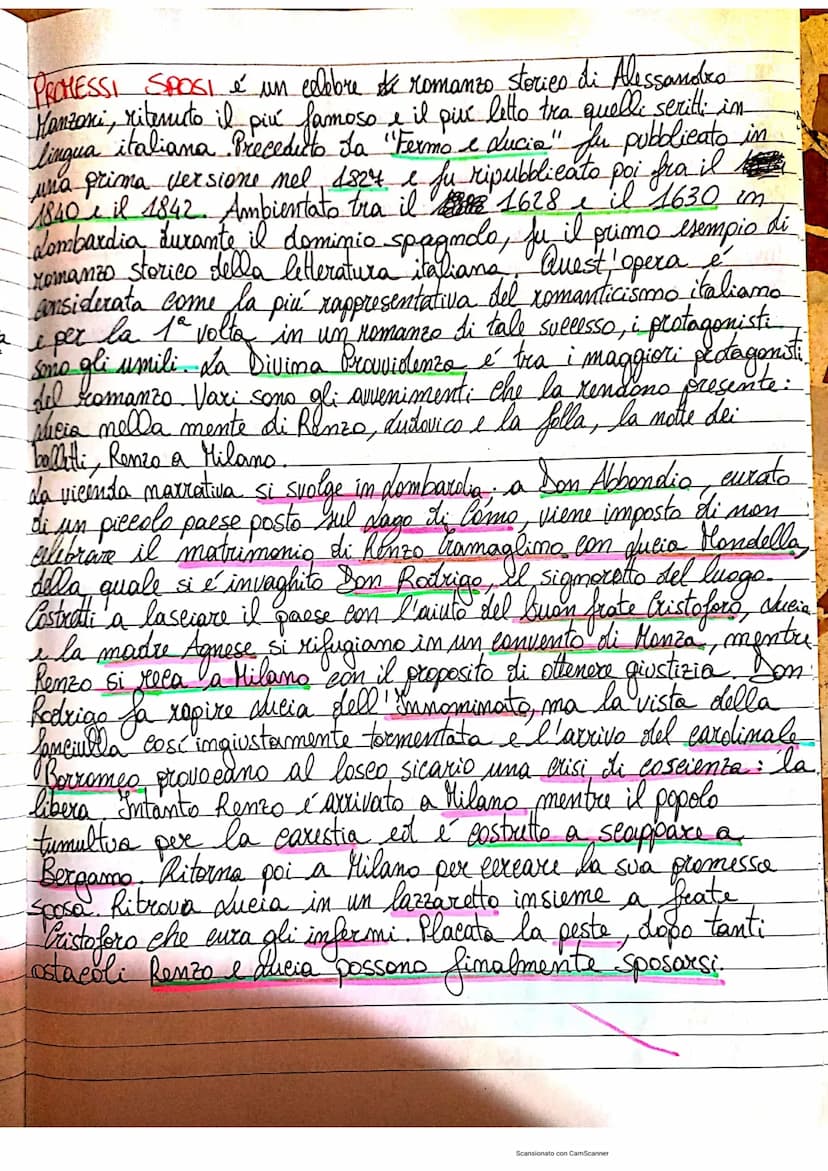 PROMESSI SPOSI é un celebre romanzo storico di Alessandro
Manzoni, ritenuto il piú famoso e il piú letto tra quelli scritti in
lingua italiana. Preceduto da "Fermo e Lucia" fu pubblicato in
una prima versione nel 1827 e fu ripubblicato poi fra il
1840 e il 1842. Ambientato tra il 1628 e il 1630 in
Lombardia durante il dominio spagnolo, fu il primo esempio di
romanzo storico della letteratura italiana. Quest'opera é
considerata come la piú rappresentativa del romanticismo italiano
e per la 1ª volta in un romanzo di tale successo, i protagonisti
sono gli umili. La Divina Provvidenza é tra i maggiori protagonisti
del romanzo. Vari sono gli avvenimenti che la rendono presente:
Lucia nella mente di Renzo, Ludovico e la folla, la notte dei
Renzo a Milano.
La vicenda narrativa si svolge in Lombardia: a Don Abbondio, curato
di un piccolo paese posto sul Lago di Como, viene imposto di non
celebrare il matrimonio di Renzo Tramaglino con Lucia Mondella,
della quale si é invaghito Don Rodrigo, il signorotto del luogo.
Costretti a lasciare il paese con l'aiuto del buon frate Cristoforo, Lucia
e la madre Agnese si rifugiano in un convento di Monza, mentre
Renzo si reca a Milano con il proposito di ottenere giustizia. Don
Rodrigo fa rapire Lucia dell'Innominato, ma la vista della
fanciulla cosí ingiustamente tormentata e l'arrivo del cardinale
Borromeo provocano al losco sicario una crisi di coscienza: la
libera. Intanto Renzo é arrivato a Milano mentre il popolo
tumultua per la carestia ed é costretto a scappare a
Bergamo. Ritorna poi a Milano per cercare la sua promessa
sposa. Ritrova Lucia in un lazzaretto insieme a frate
Cristoforo che cura gli infermi. Placata la peste, dopo tanti
ostacoli Renzo e Lucia possono finalmente sposarsi.
Scansionato con CamScanner